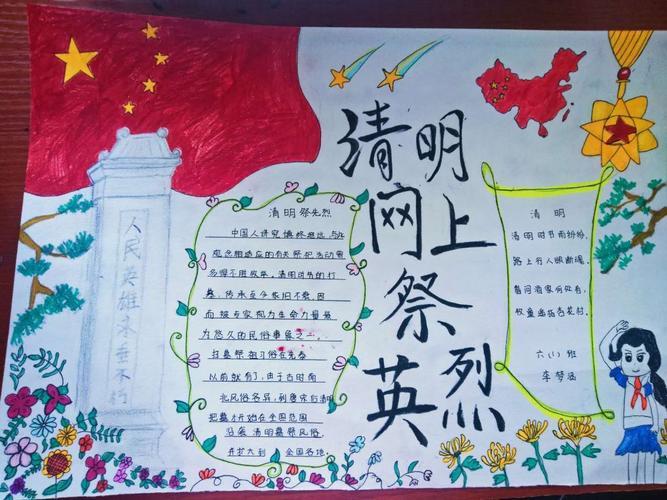 清明
网上
祭
英烈
人民英雄永垂不朽
清明祭先烈
中国人讲究慎终追远,与此
观念相适应的有关祭祀活动
多得不胜枚举,清明时节的扫
墓,传承至今依旧不衰,因
而被专家视为生命力最强
为悠久的民俗事象之一。
扫墓祭祖习俗在先秦
以前就有了,由于古时南
北风俗各异,到唐宋后清明
把墓才开始在全国范围
沿袭清明墓祭风俗,
并扩大到 全国各地
清明
清明时节雨纷纷,
路上行人欲断魂,
借问酒家何处有,
牧童遥指杏花村。
六(1)班
李梦涵